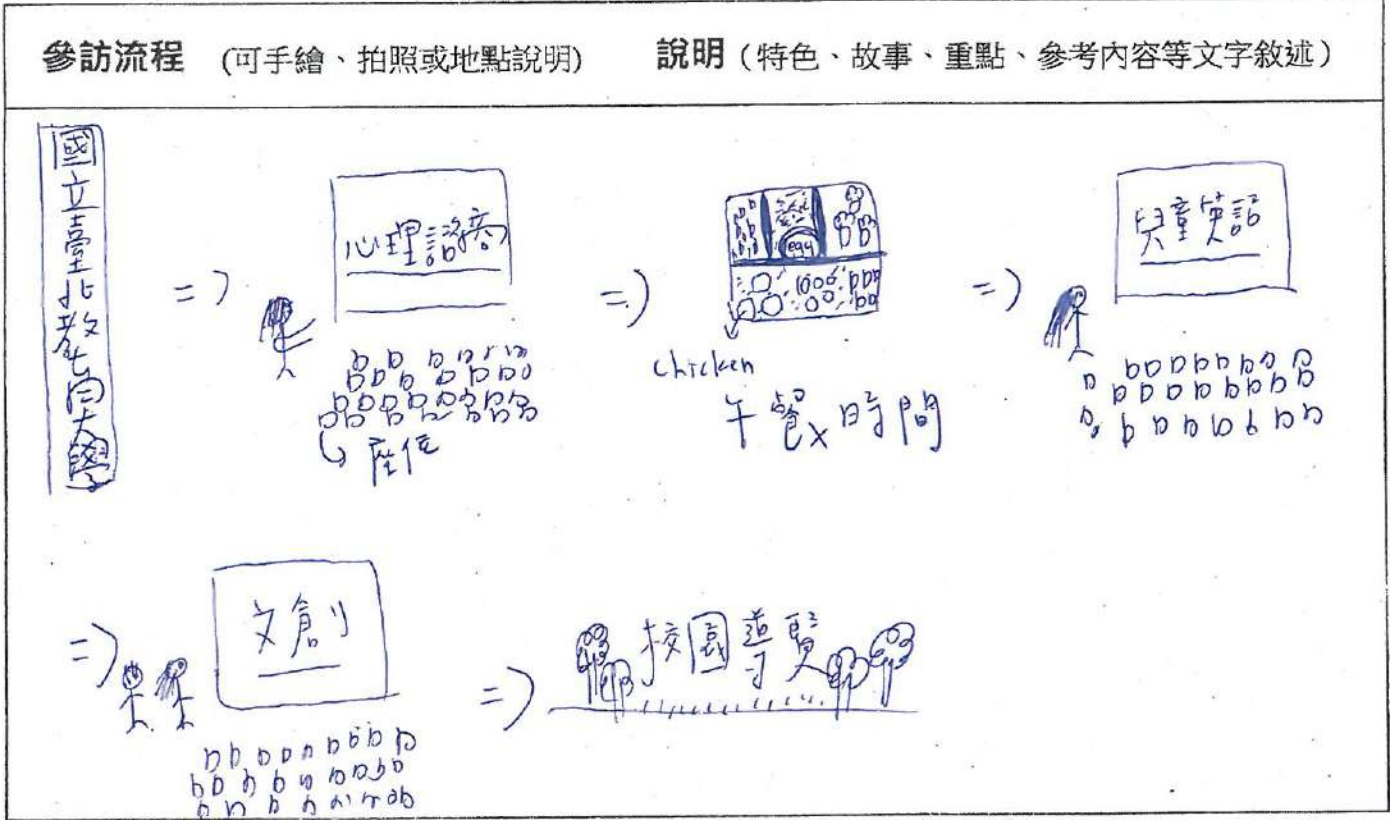 參訪流程 (可手繪、拍照或地點說明) 說明(特色、故事、重點、參考內容等文字敘述)
國立臺北教育大學
=> 心理諮商
座位
=> egg
chicken
午餐時間
=> 兒童英語
=> 文創
=> 校園導覽